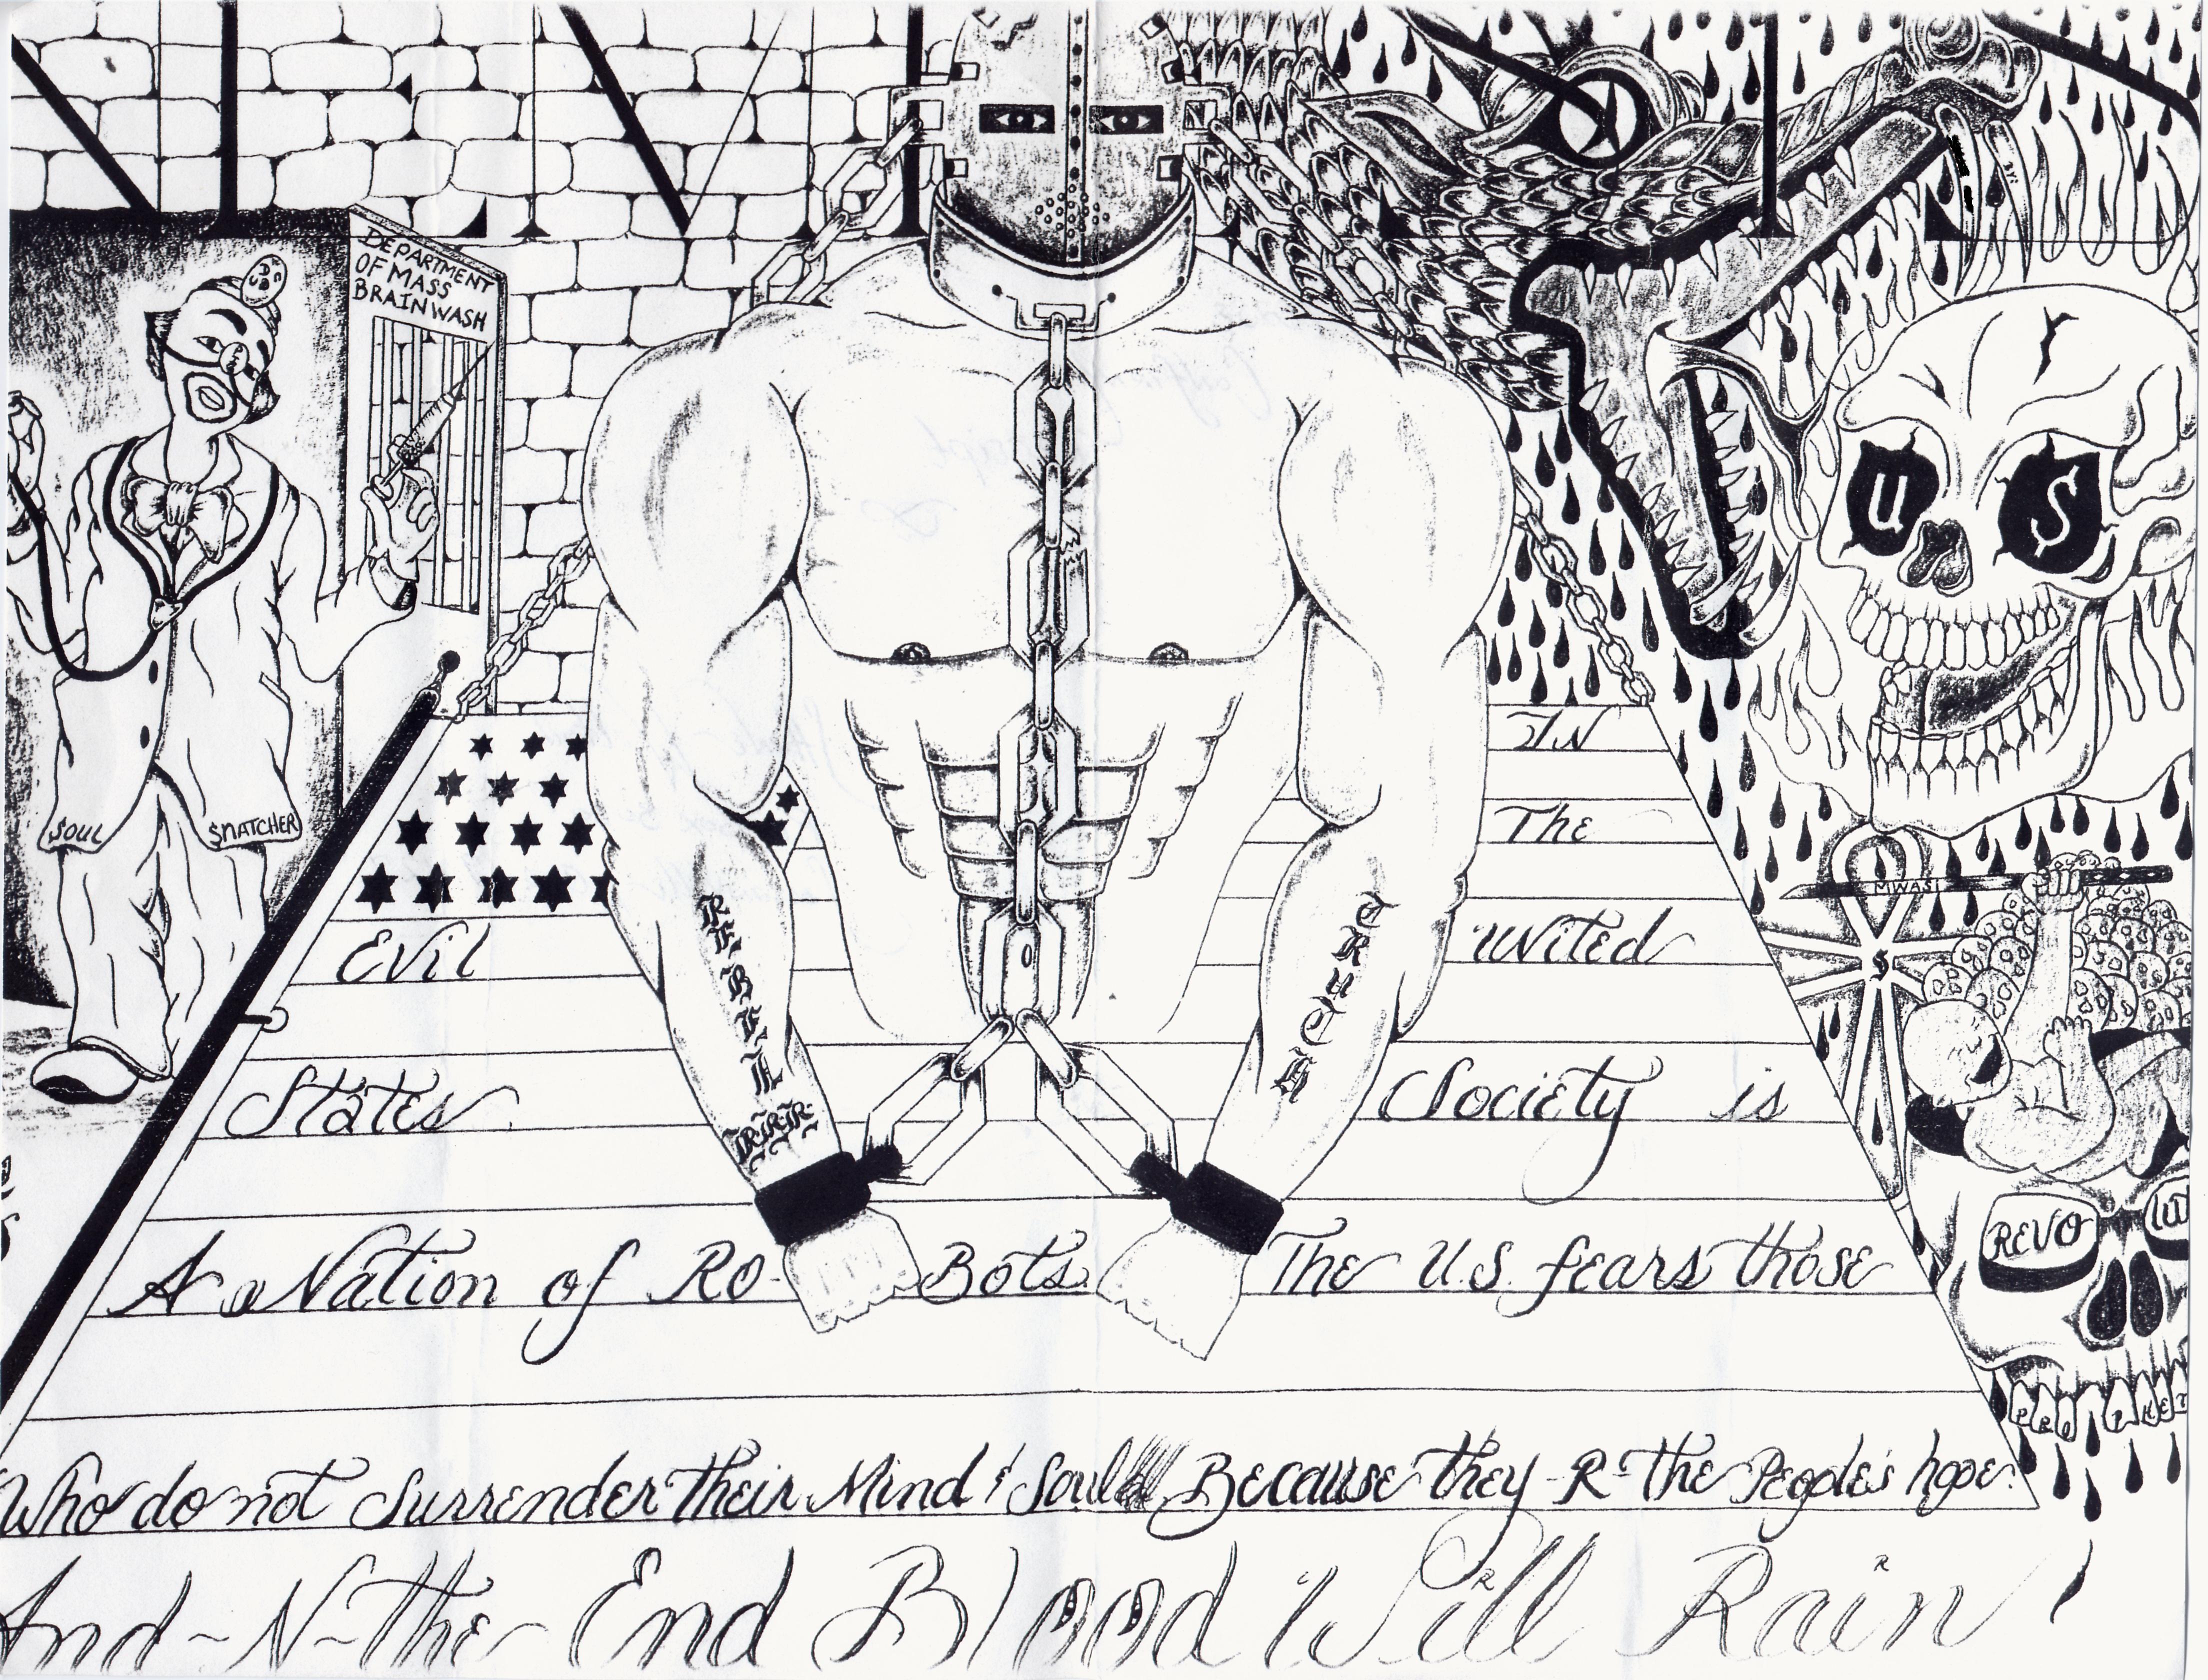 DEPARTMENT
OF MASS
BRAINWASH
U S
SOUL $NATCHER
IN
The
Evil United
States Society is
MWASI
$
REBEL
RRR
TRUTH
REVO
A Nation of Ro-Bots. The U.S. fears those
Who do not Surrender their Mind & Soul Because they R the People's hope.
And-N-The End Blood Will Rain